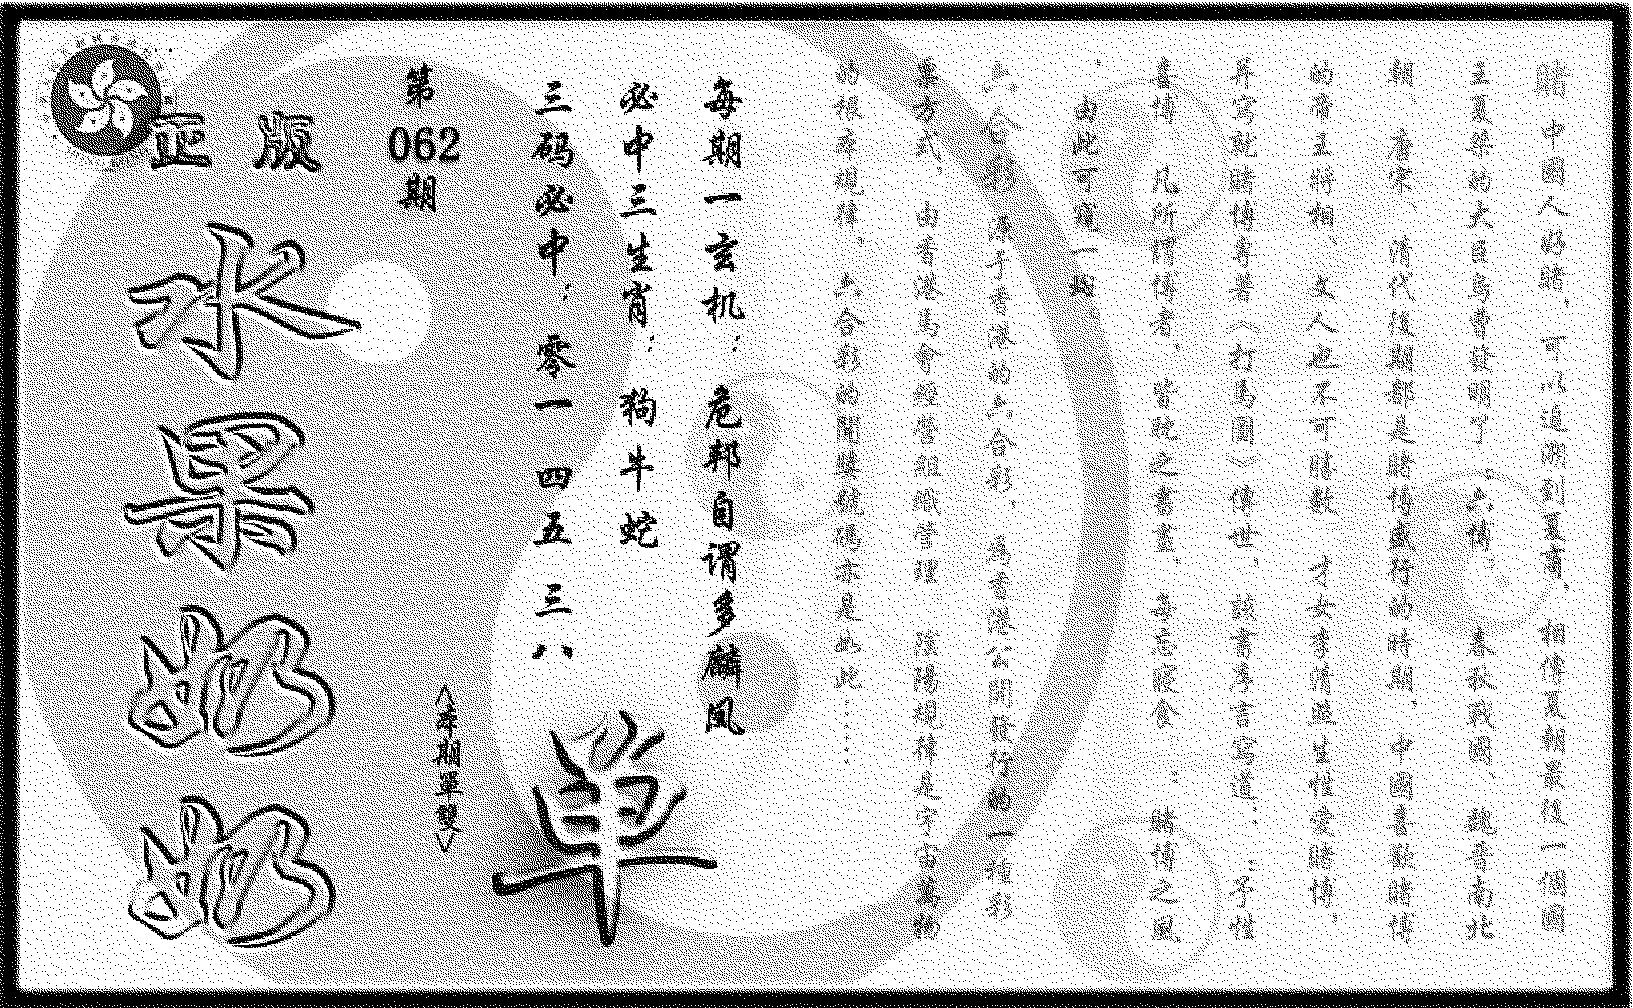 賭 中國人好賭，可以追溯到夏商，相傳夏朝最後一個國
王夏桀的大臣烏曹發明了“六博 春秋戰國、魏晉南北
朝、唐宋、清代後期都是賭博盛行的時期，中國喜歡賭博
的帝王將相 文人也不可勝數 才女李清照生性愛賭博，
并寫就賭博專著《打馬圖》傳世，該書序言寫道：“予性
喜博 凡所謂博者，皆耽之晝夜 每忘寢食 ”賭博之風
，由此可窺一斑
六合彩 源于香港的六合彩，爲香港公開發行的一種彩
票方式，由香港馬會經營組織管理 陰陽規律是宇宙萬物
的根本規律，六合彩的開獎號碼亦是如此……
每期一玄机：危邦自谓多麟凤
必中三生肖：狗牛蛇
三码必中：零一 四五 三八
单
第
062
期
《本期單雙》
正版
水果奶奶